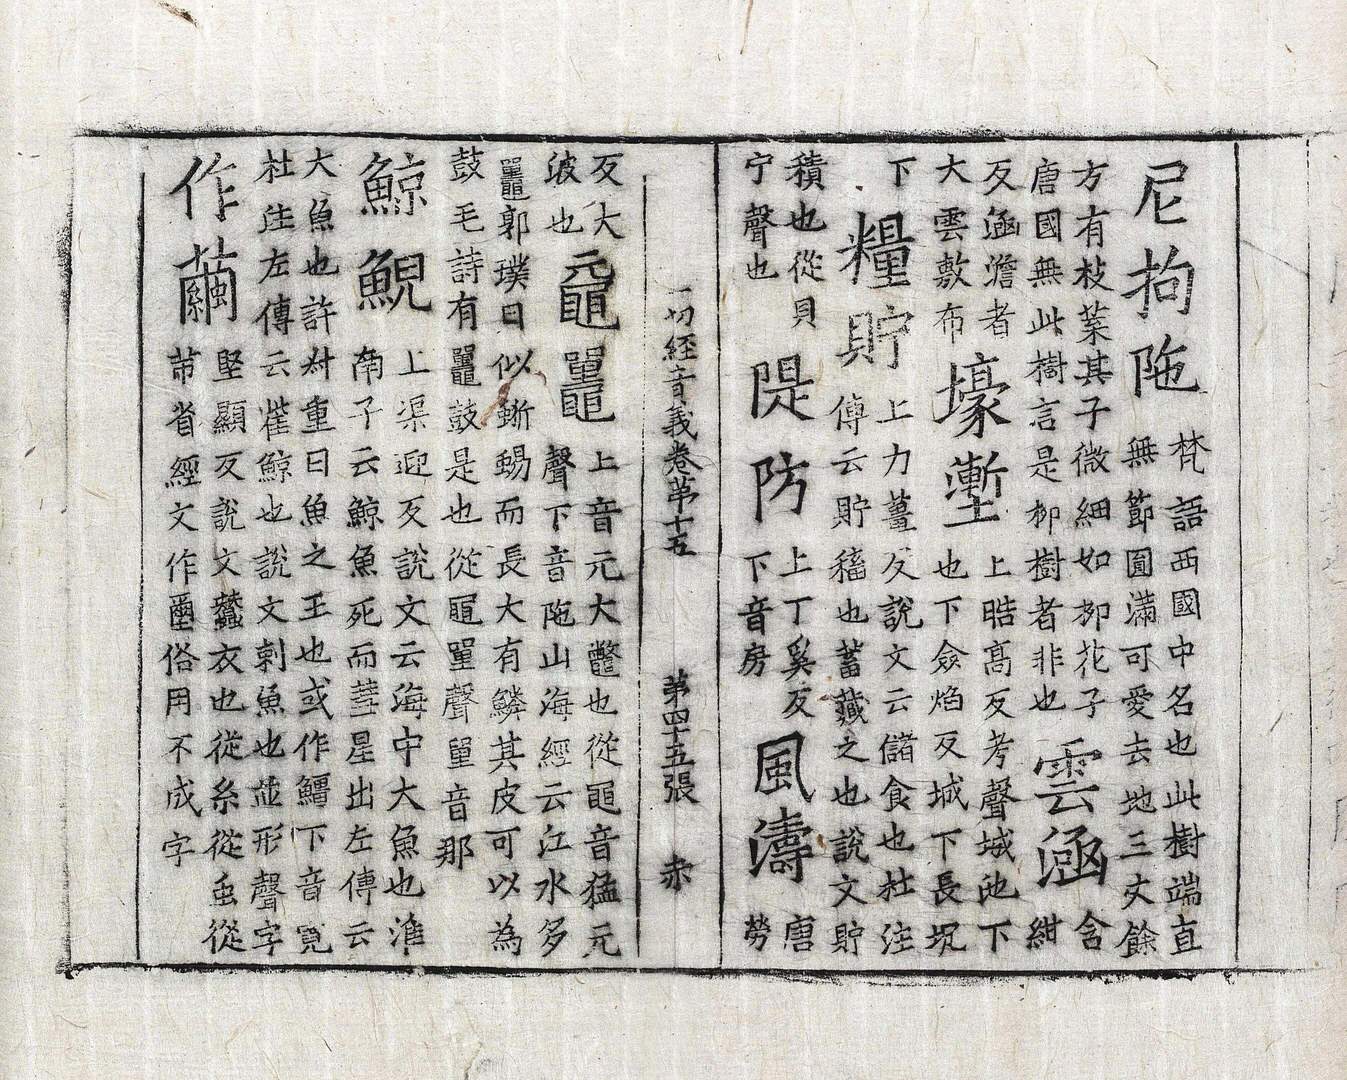 尼拘陁 梵語西國中名也此樹端直
無節圓滿可愛去地三丈餘
方有枝葉其子微細如栁花子
唐國無此樹言是栁樹者非也 雲涵 含
紺
反涵澹者
大雲敷布 壕塹 上晧高反考聲城池下
也下僉焰反城下長坑
下 糧貯 上力薑反說文云儲食也杜注
傳云貯稸也蓄藏之也說文貯
積也從貝
宁聲也 隄防 上丁奚反
下音房 風濤 唐
勞
一切經音義卷苐十五 苐四十五張 赤
反大
波也 黿鼉 上音元大鼈也從黽音猛元
聲下音陁山海經云江水多
鼉郭璞曰似蜥蜴而長大有鱗其皮可以為
鼓毛詩有鼉鼓是也從黽單聲單音那
鯨鯢 上渠迎反說文云海中大魚也淮
南子云鯨魚死而彗星出左傳云
大魚也許叔重曰魚之王也或作鱷下音寬
杜注左傳云雌鯨也說文剌魚也並形聲字
作繭 堅顯反說文蠶衣也從糸從虫從
芇省經文作壐俗用不成字